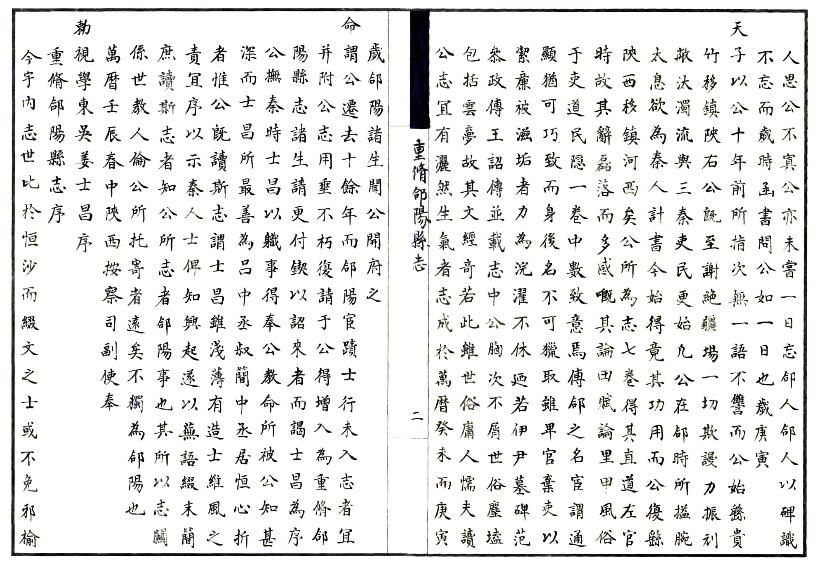 人思公不寘公亦未嘗一日忘郃人郃人以碑識
不忘而歲時函書問公如一日也歲庚寅
天子以公十年前所指次無一語不讐而公始繇貴
竹移鎮陜右公既至謝絶疆場一切欺謾力振刓
敝汰濁流與三秦吏民更始凢公在郃時所搤腕
太息欲為秦人計書今始得竟其功用而公復繇
陜西移鎮河西矣公所為志七卷得其直道左官
時故其辭磊落而多感嘅其論田賦論里甲風俗
于吏道民隱一卷中數致意焉傳郃之名宦謂通
顯猶可巧致而身後名不可獵取雖卑官棄吏以
絜廉被滋垢者力為浣濯不休廼若伊尹墓碑范
叅政傳王詔傳並載志中公胸次不屑世俗塵壒
包括雲夢故其文經奇若此雖世俗庸人懦夫讀
公志宜有灑然生氣者志成於萬曆癸未而庚寅
重脩郃陽縣志
二
歲郃陽諸生聞公開府之
命謂公遷去十餘年而郃陽宦蹟士行未入志者宜
并附公志用垂不朽復請于公得增入為重脩郃
陽縣志諸生請更付鍥以詔來者而謁士昌為序
公撫秦時士昌以職事得奉公教命所被公知甚
深而士昌所最善為吕中丞叔簡中丞居恒心折
者惟公既讀斯志謂士昌雖淺薄有造士維風之
責宜序以示秦人士俾知興起遂以蕪語綴末簡
庶讀斯志者知公所志者郃陽事也其所以志關
係世教人倫公所托寄者遠矣不獨為郃陽也
萬曆壬辰春中陜西按察司副使奉
勑視學東吳姜士昌序
重脩郃陽縣志序
今宇内志世比於恒沙而綴文之士或不免邪揄